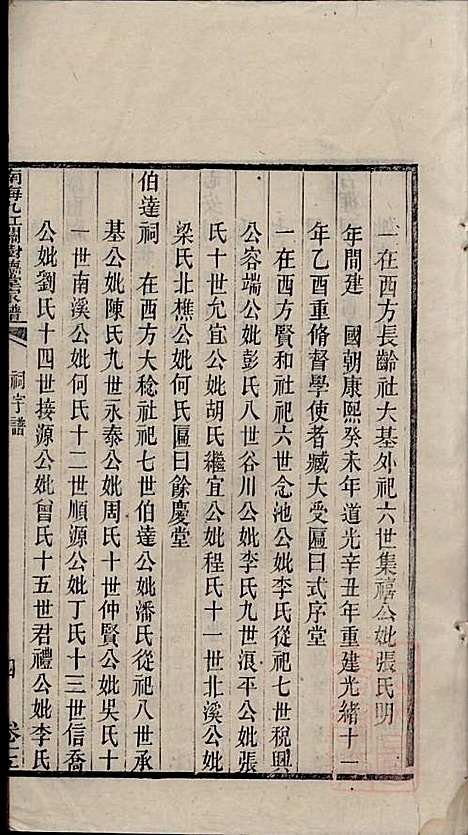 一在西方長齡社大基外祀六世集禧公妣張氏明
年間建　國朝康熙癸未年道光辛丑年重建光緒十一
年乙酉重脩督學使者臧大受匾曰式序堂
一在西方賢和社祀六世念池公妣李氏從祀七世稅興
公容端公妣彭氏八世谷川公妣李氏九世浪平公妣張
氏十世允宜公妣胡氏繼宜公妣程氏十一世北溪公妣
梁氏北樵公妣何氏匾曰餘慶堂
伯達祠　在西方大稔社祀七世伯達公妣潘氏從祀八世承
基公妣陳氏九世永泰公妣周氏十世仲賢公妣吳氏十
一世南溪公妣何氏十二世順源公妣丁氏十三世信喬
公妣劉氏十四世接源公妣曾氏十五世君禮公妣李氏
南海九江關樹德堂家譜　祠宇譜　四　卷十